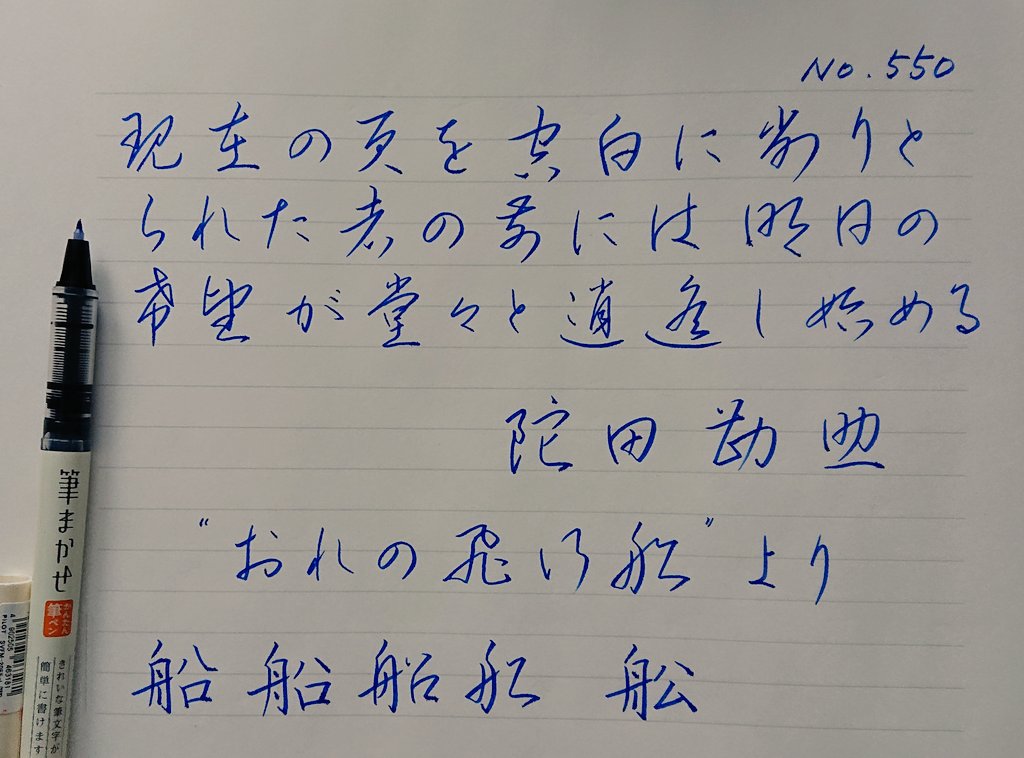 No.550
現在の頁を真白に剝りと
られた者の前には明日の
希望が堂々と逍遙し始める
陀田勘助
"おれの飛行船"より
船船船船 舩
筆まかせ
かんたん
筆ペン
きれいな筆文字が
簡単に書けます
PILOT